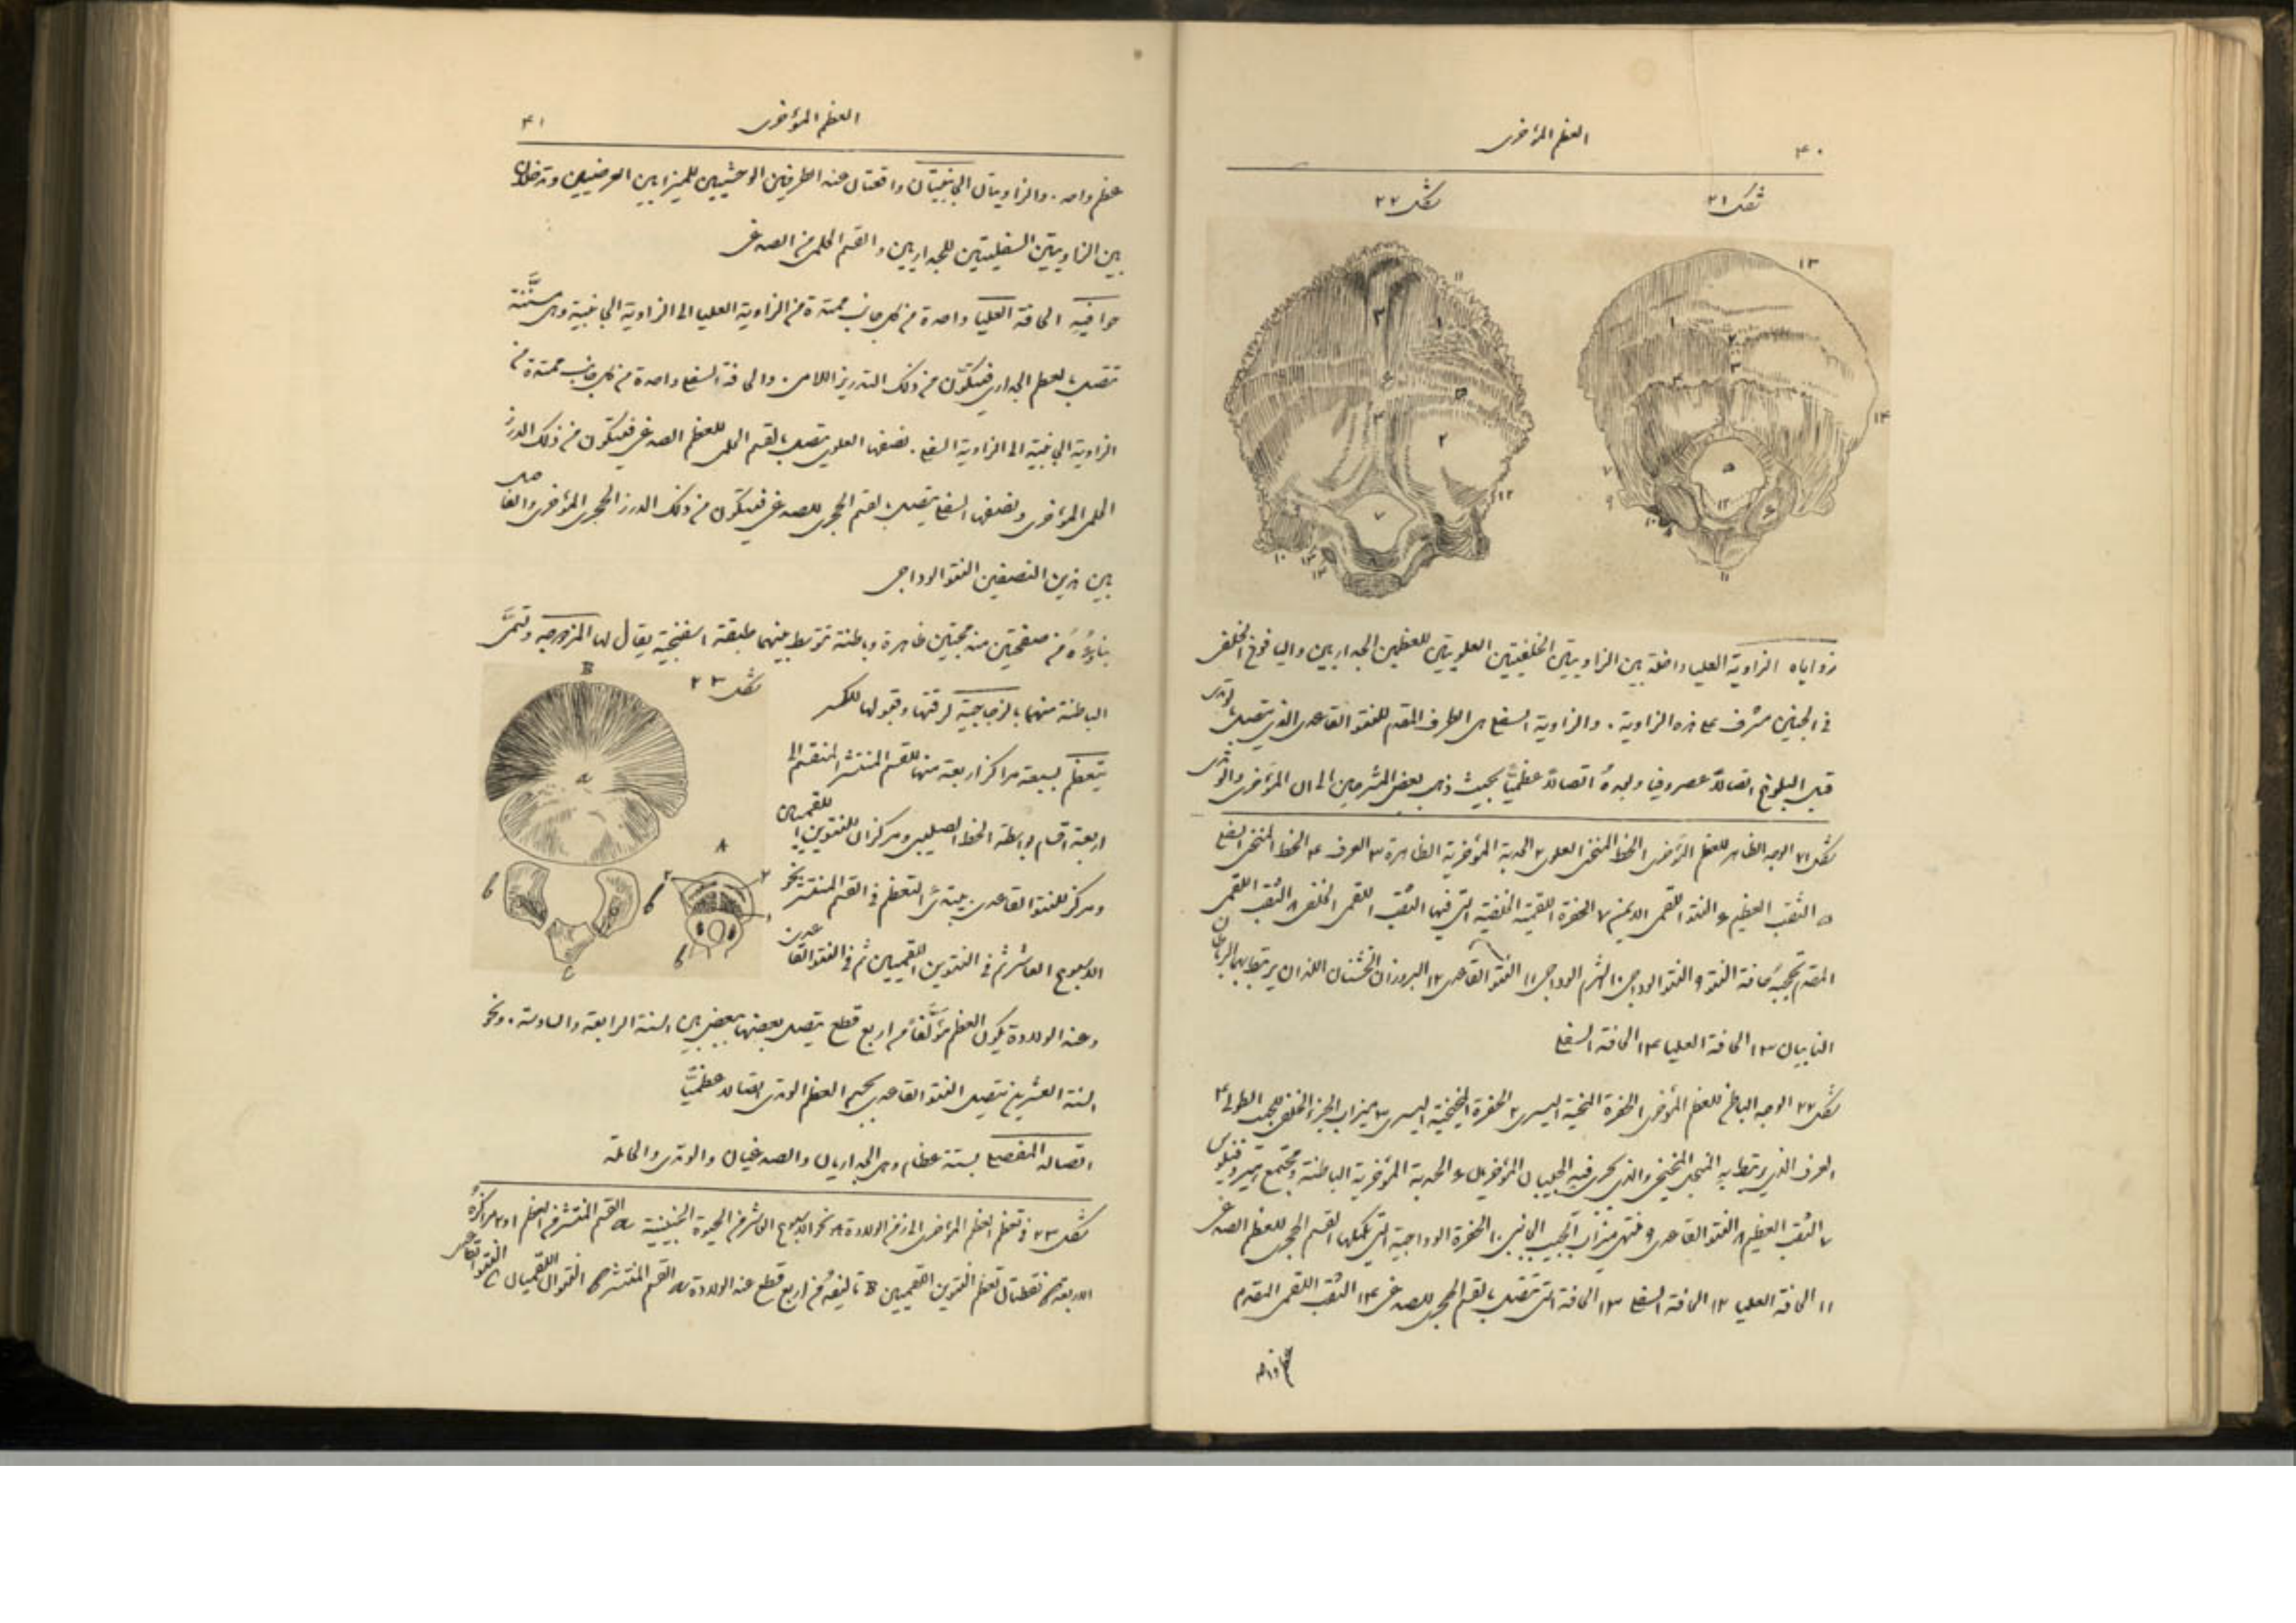 ٤٠
العظم المؤخرى
شكل ٢١
شكل ٢٢
زواياه الزاوية العليا داخلة بين الزاويتين الخلفيتين العلويتين للعظمين الجداريين واليافوخ الخلفى
فى الجنين مشرف على هذه الزاوية . والزاوية السفلى هى الطرف المقدم للنتو القاعدى الذى يتصل بالوتدى
قبل البلوغ اتصالاً غضروفيا وبعده اتصالاً عظميًّا بحيث ذهب بعض المشرحين الى ان المؤخرى والوتدى
شكل ٢١ الوجه الظاهر للعظم المؤخرى ١ الخط المنحنى العلوى ٢ الحدبة المؤخرية الظاهرة ٣ العرف ٤ الخط المنحنى السفلى
٥ الثقب العظيم ٦ النتو اللقمى الايمن ٧ الحفرة اللقمية الخلفية التى فيها الثقب اللقمى الخلفى ٨ الثقب اللقمى
المقدم تحجبه حافة النتو ٩ النتو الوداجى ١٠ الشرم الوداجى ١١ النتو القاعدى ١٢ البروزان الخشنان اللذان يرتبط بهما الرباطان
النابيان ١٣ الحافة العليا ١٤ الحافة السفلى
شكل ٢٢ الوجه الباطن للعظم المؤخرى ١ الحفرة المخية اليسرى ٢ الحفرة المخيخية اليسرى ٣ ميزاب الجزء الخلفى للجيب الطولى ٤
العرف الذى يرتبط به المنجل المخيخى والذى يجرى فيه الجيبان المؤخريان ٦ الحدبة المؤخرية الباطنة ومجتمع هيروفيلوس
٧ الثقب العظيم ٨ النتو القاعدى ٩ منتهى ميزاب الجيب الجانبى ١٠ الحفرة الوداجية التى تكملها القسم الحجرى للعظم الصدغى
١١ الحافة العليا ١٢ الحافة السفلى ١٣ الحافة التى تتصل بالقسم الحجرى للصدغى ١٤ الثقب اللقمى المقدم
العظم المؤخرى
٤١
عظم واحد . والزاويتان الجانبيتان واقعتان عند الطرفين الوحشيين للميزابين العرضيين وتدخلان
بين الزاويتين السفليتين للجداريين والقسم الحلمى من الصدغى
حوافيه الحافة العليا واحدة من كل جانب ممتدة من الزاوية العليا الى الزاوية الجانبية وهى مسننة
تتصل بالعظم الجدارى فيتكوّن من ذلك التدريز اللامى . والحافة السفلى واحدة من كل جانب ممتدة من
الزاوية الجانبية الى الزاوية السفلى . نصفها العلوى يتصل بالقسم الحلمى للعظم الصدغى فيتكون من ذلك الدرز
الحلمى المؤخرى ونصفها السفلى يتصل بالقسم الحجرى للصدغى فيتكون من ذلك الدرز الحجرى المؤخرى والفاصل
بين هذين النصفين النتو الوداجى
بناؤه من صفحتين مندمجتين ظاهرة وباطنة تتوسط بينهما طبقة اسفنجية يقال لها المزدوجه وتسمَّى
شكل ٢٣
الباطنة منهما بالزجاجية لرقتها وقبولها للكسر
يتعظم بسبعة مراكز اربعة منها للقسم المنتشر المنقسم الى
اربعة اقسام بواسطة الخط الصليبى ومركزان للنتوين اللقميين
ومركز للنتو القاعدى . يبتدئ التعظم فى القسم المنتشر نحو
الاسبوع العاشر ثم فى النتوين اللقميين ثم فى النتو القاعدى
وعند الولادة يكون العظم مؤلَّفاً من اربع قطع يتصل بعضها ببعض بين السنة الرابعة والسادسة . ونحو
السنة العشرين يتصل النتو القاعدى بجسم العظم الوتدى اتصالاً عظميًّا
اتصاله المفصلى بستة عظام وهى الجداريان والصدغيان والوتدى والحاملة
شكل ٢٣ فى تعظم العظم المؤخرى الى زمن الولادة A نحو الاسبوع العاشر من الحيوة الجنينية a القسم المنتشر من العظم ١ و٢ مراكزه
الاربعة b نقطتان تعظم النتوين اللقميين B تاليفه من اربع قطع عند الولادة a القسم المنتشر b النتوان اللقميان C النتو القاعدى